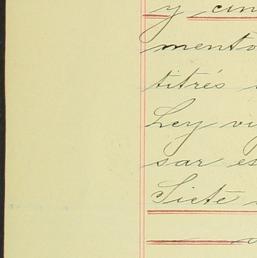 y cin
mento
titrés
Ley vi
sar es
Siete